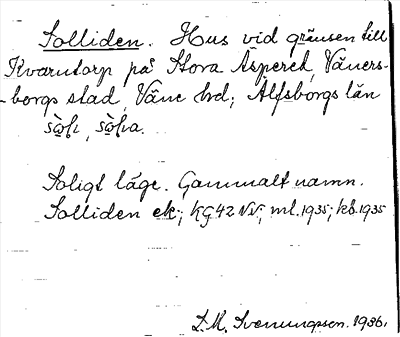 Solliden. Hus vid gränsen till
Kvarntorp på Stora Aspered, Väners-
-borgs stad, Väne hd; Älfsborgs län
Soligt läge. Gammalt namn.
Solliden ek; KG 42 NV; ml. 1935; kb. 1935
D.M. Svenungsson. 1936.